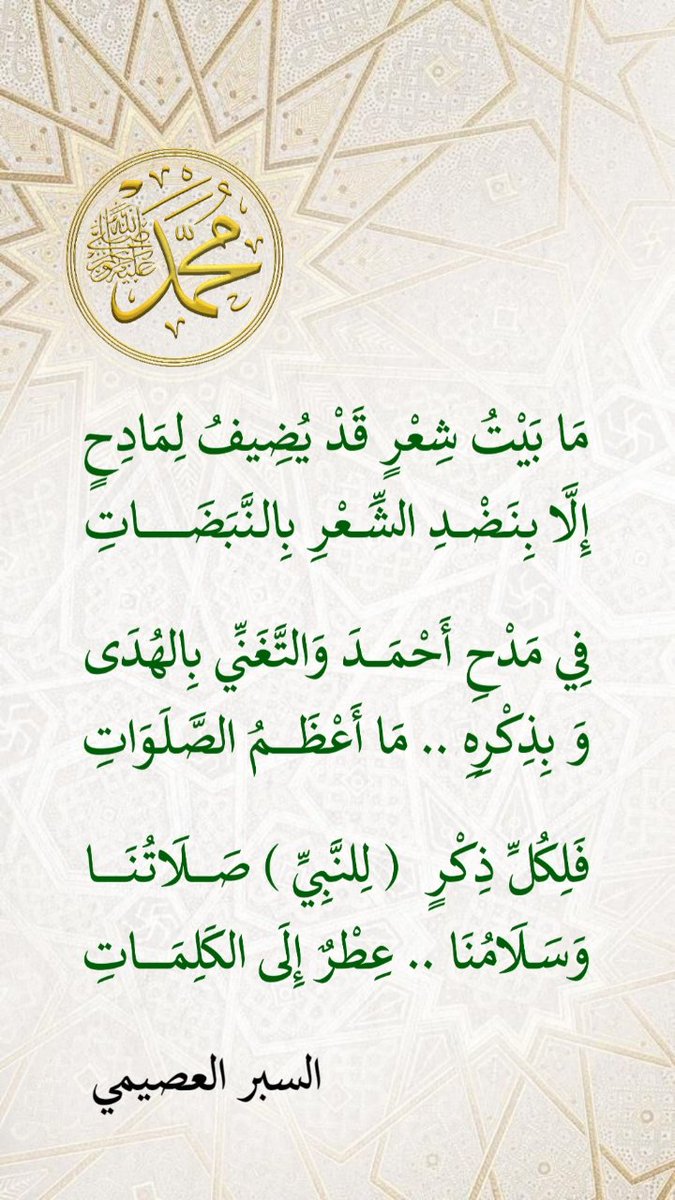 محمد
صلى الله عليه وسلم
مَا بَيْتُ شِعْرٍ قَدْ يُضِيفُ لِمَادِحٍ
إِلَّا بِنَضْدِ الشِّعْرِ بِالنَّبَضَـــاتِ
فِي مَدْحِ أَحْمَـدَ وَالتَّغَنِّي بِالهُدَى
وَ بِذِكْرِهِ .. مَا أَعْظَــمُ الصَّلَوَاتِ
فَلِكُلِّ ذِكْرٍ ( لِلنَّبِيِّ ) صَــلَاتُنَــا
وَسَـلَامُنَا .. عِطْرٌ إِلَى الكَلِمَــاتِ
السبر العصيمي